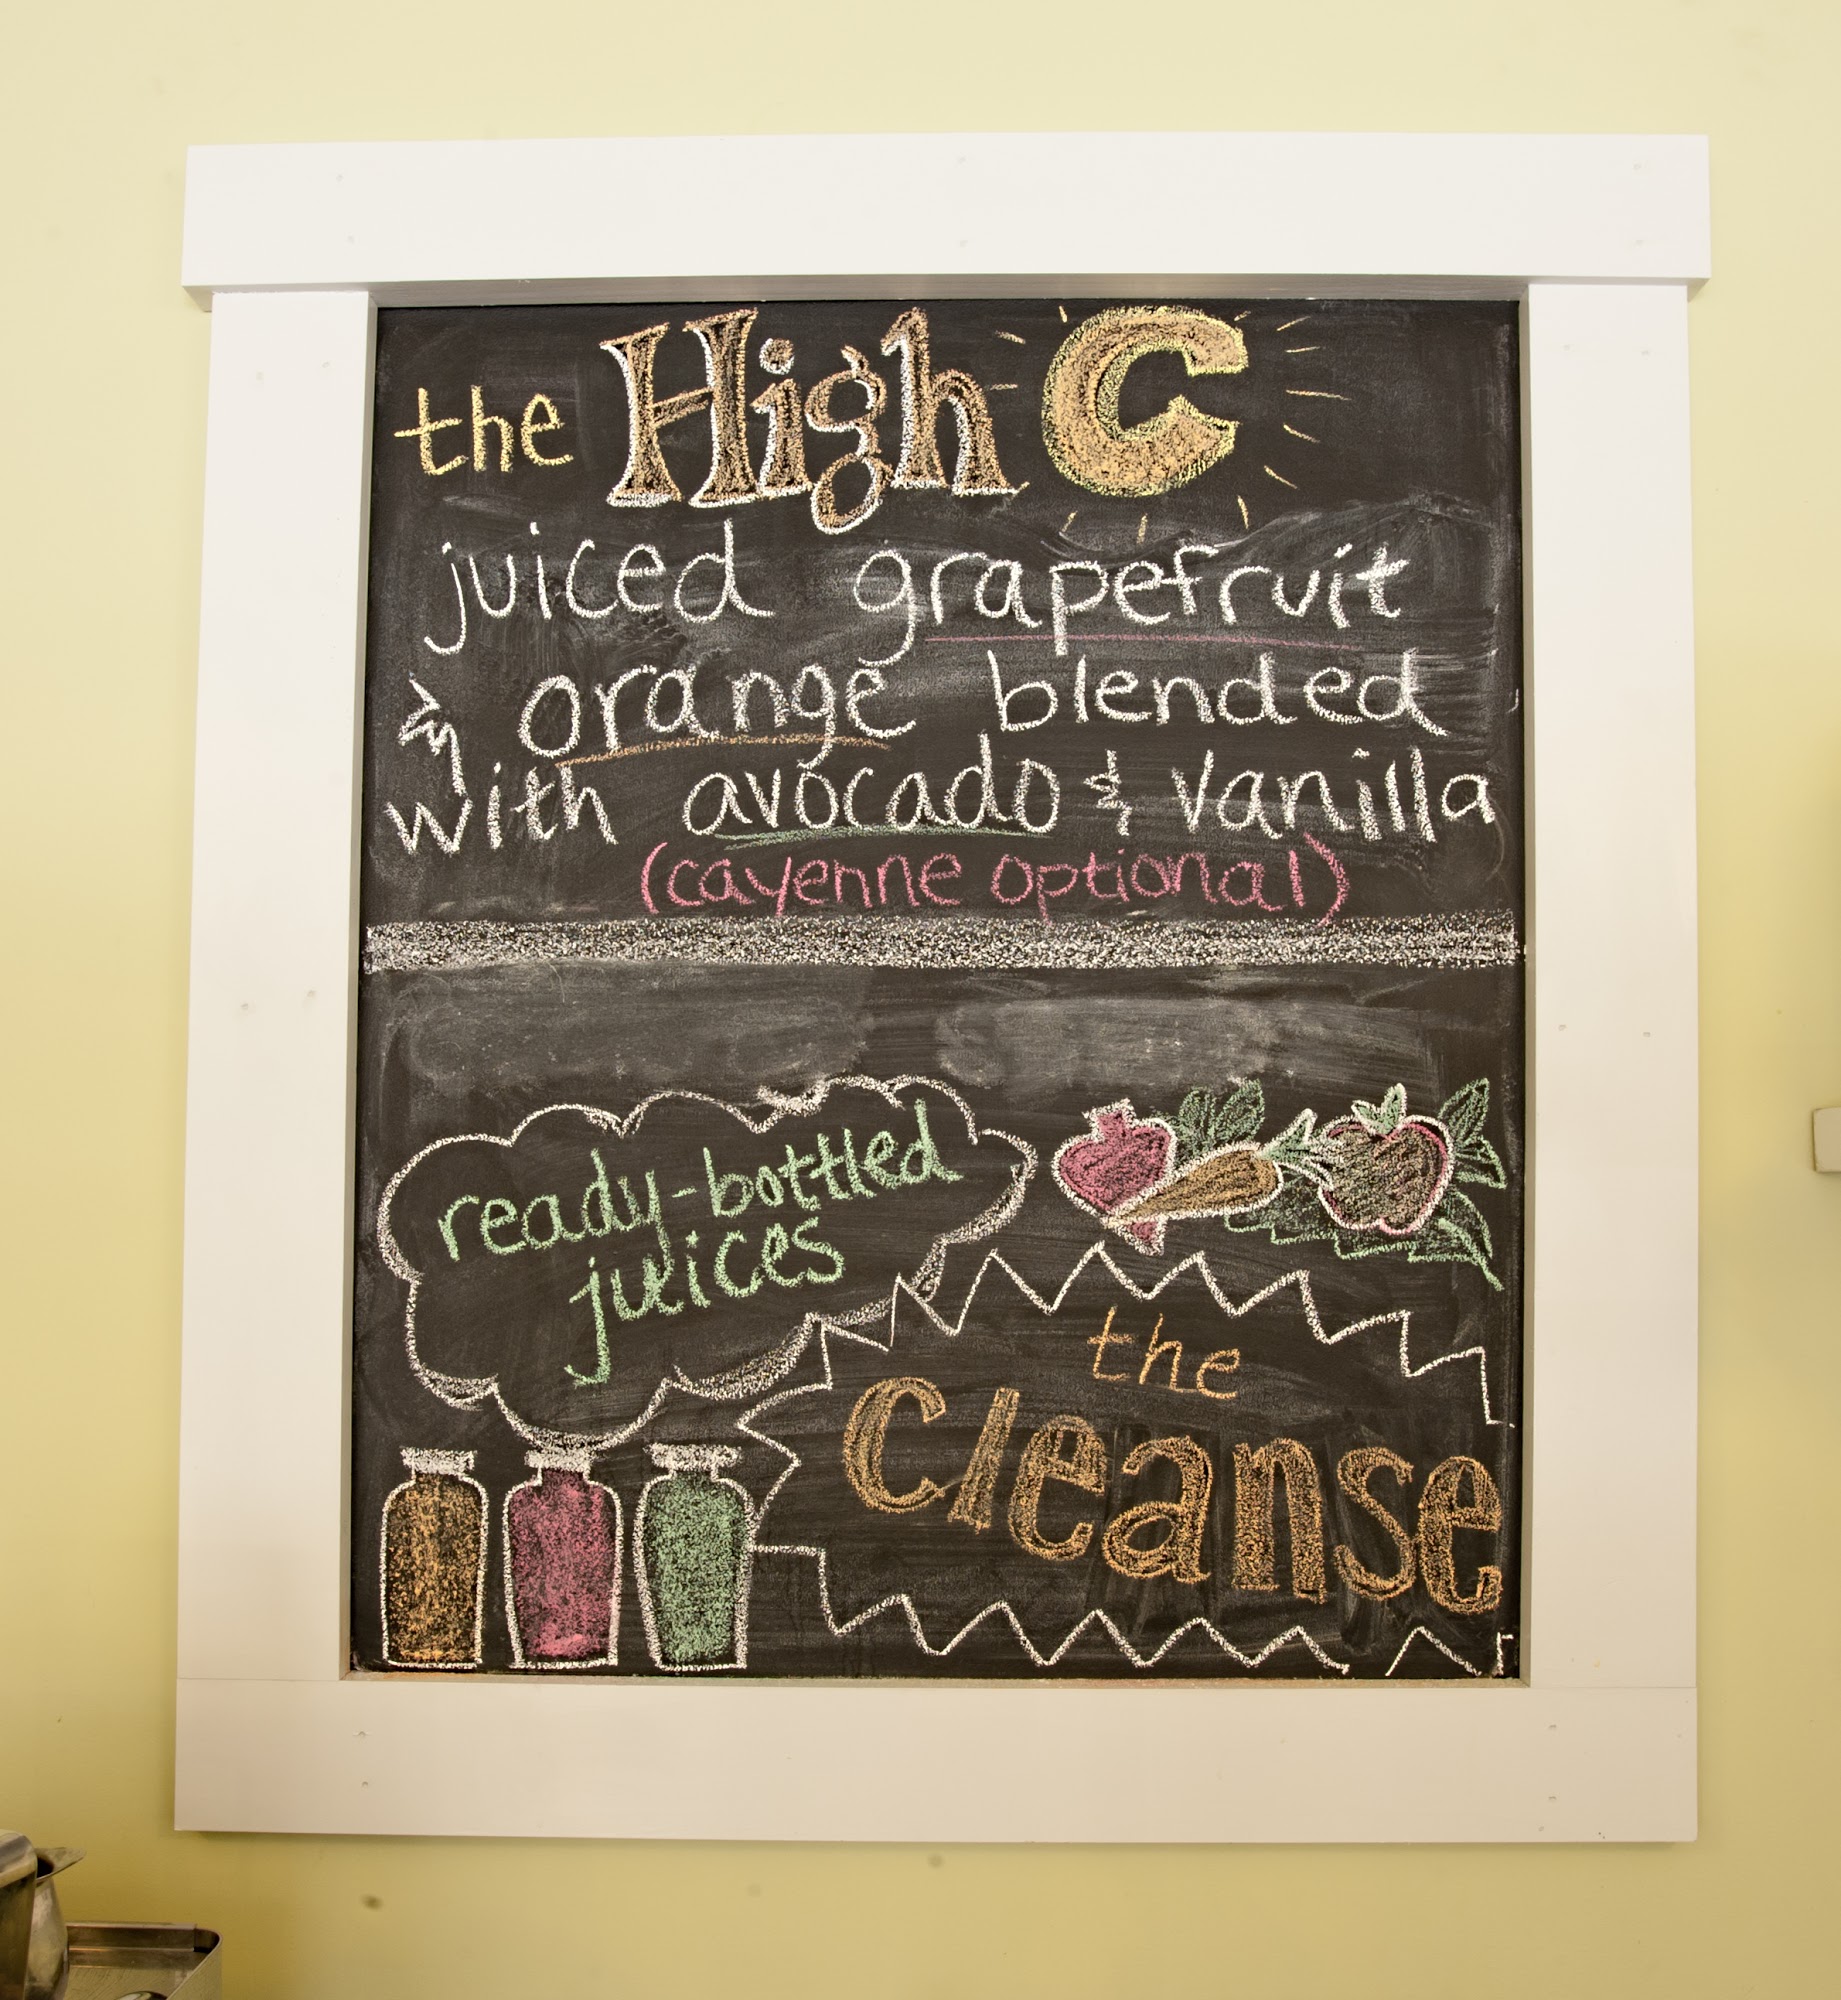 the High C
juiced grapefruit
& orange blended
with avocado & vanilla
(cayenne optional)
ready-bottled
juices
the
Cleanse